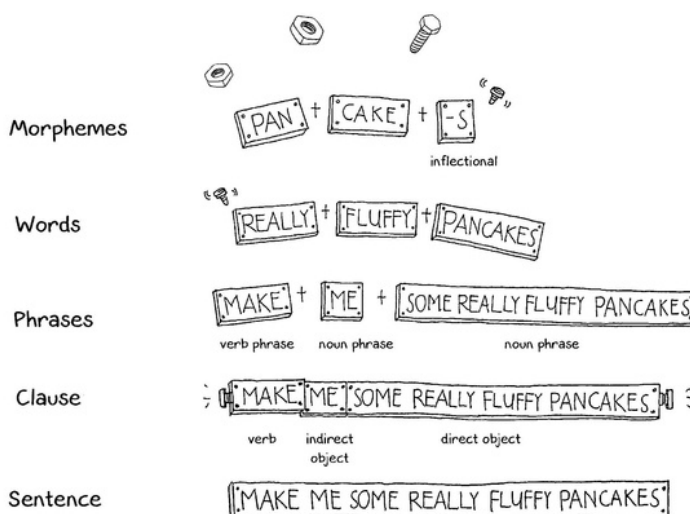 Morphemes
PAN + CAKE + -S
inflectional
Words
REALLY + FLUFFY + PANCAKES
Phrases
MAKE + ME + SOME REALLY FLUFFY PANCAKES
verb phrase noun phrase noun phrase
Clause
MAKE ME SOME REALLY FLUFFY PANCAKES
verb indirect object direct object
Sentence
MAKE ME SOME REALLY FLUFFY PANCAKES